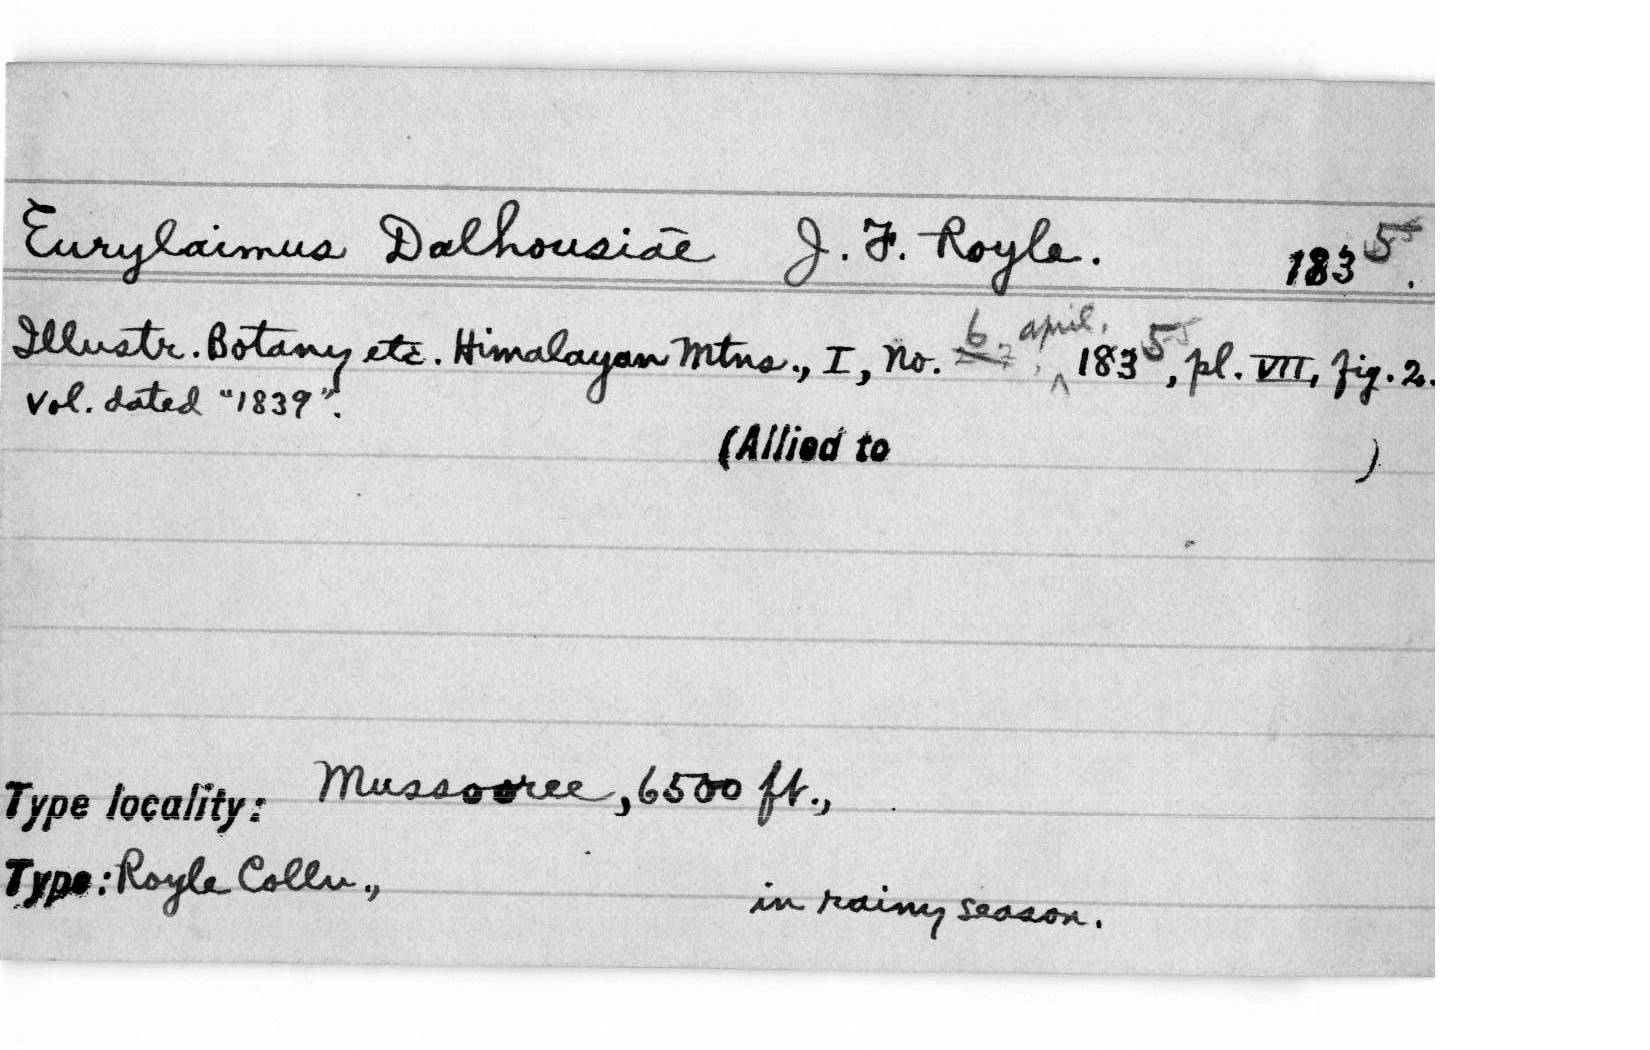 Eurylaimus Dalhousiae J. F. Royle. 1835.
Illustr. Botany etc. Himalayan Mtns., I, No. 6 april, 1835, pl. VII, fig. 2.
Vol. dated "1839".
(Allied to )
Type locality: Mussooree, 6500 ft.,
Type: Royle Colln.,
in rainy season.